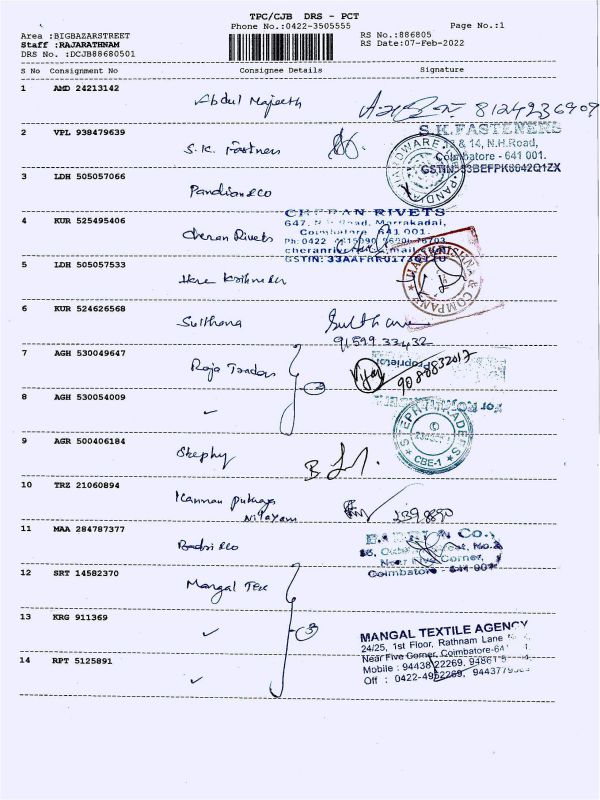 TPC/CJB DRS - PCT
Phone No.:0422-3505555
Page No.:1
Area :BIGBAZARSTREET
Staff :RAJARATHNAM
DRS No. :DCJB88680501
RS No.:886805
RS Date:07-Feb-2022
S No Consignment No Consignee Details Signature
1 AMD 24213142 Abdul Majeeth 8124236909
2 VPL 938479639 S.K. Fastners
S.K.FASTENERS
& 14, N.H.Road,
Coimbatore - 641 001.
GSTIN: 33BEFPK8042Q1ZX
3 LDH 505057066 Pandian &co
HARDWARE PANDIAN
4 KUR 525495406 Cheran Rivets
CHERAN RIVETS
647, Road, Marrakadai,
Coimbatore 641 001.
Ph:0422
GSTIN:
5 LDH 505057533 Hare Krishna &co
& COMPANY
6 KUR 524626568 Sulthana
Sulthana
9159933432
7 AGH 530049647 Raja Traders
2
Vijay 9088832017
Proprietor
8 AGH 530054009 ✓
For
9 AGR 500406184 Stephy
STEPHY TRADERS
CBE-1
10 TRZ 21060894 Kannan Puthaga
Nilayam
11 MAA 284787377 Badri &co
Co.,
Street, No.2
Near Five Corner,
Coimbatore - 641 001
12 SRT 14582370 Mangal Tex
3
13 KRG 911369 ✓
MANGAL TEXTILE AGENCY
24/25, 1st Floor, Rathnam Lane
Near Five Corner, Coimbatore-641
Mobile : 94438 22269,
Off : 0422-4952269,
14 RPT 5125891 ✓